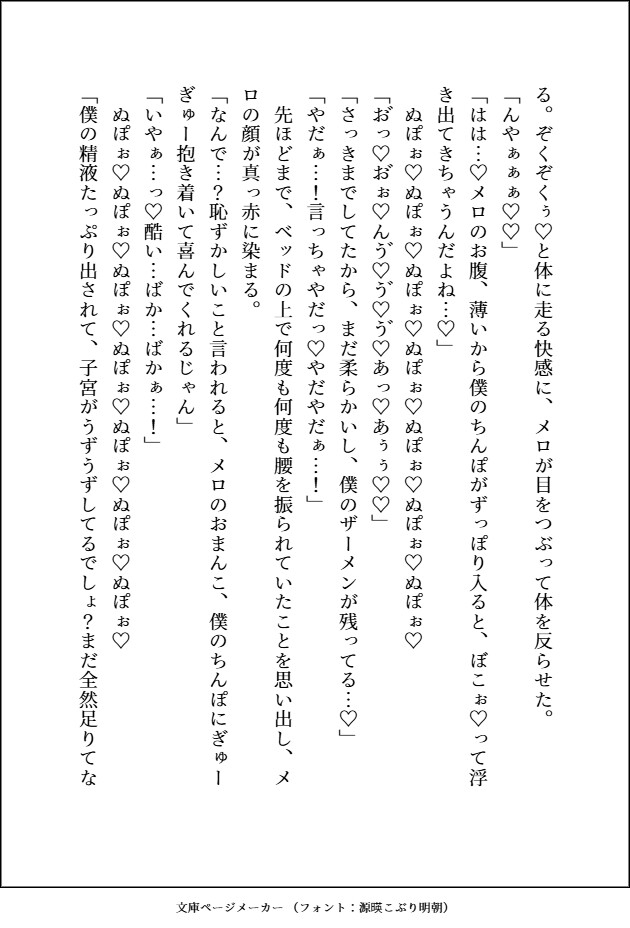 る。ぞくぞくぅ♡と体に走る快感に、メロが目をつぶって体を反らせた。
「んやぁぁぁ♡♡」
「はは…♡メロのお腹、薄いから僕のちんぽがずっぽり入ると、ぼこぉ♡って浮
き出てきちゃうんだよね…♡」
　ぬぽぉ♡ぬぽぉ♡ぬぽぉ♡ぬぽぉ♡ぬぽぉ♡ぬぽぉ♡ぬぽぉ♡
「お゙っ♡お゙ぉ♡んゔ♡ゔ♡ゔ♡あっ♡あぅぅ♡♡」
「さっきまでしてたから、まだ柔らかいし、僕のザーメンが残ってる…♡」
「やだぁ…！言っちゃやだっ♡やだやだぁ…！」
　先ほどまで、ベッドの上で何度も何度も腰を振られていたことを思い出し、メ
ロの顔が真っ赤に染まる。
「なんで…？恥ずかしいこと言われると、メロのおまんこ、僕のちんぽにぎゅー
ぎゅー抱き着いて喜んでくれるじゃん」
「いやぁ…っ♡酷い…ばか…ばかぁ…！」
　ぬぽぉ♡ぬぽぉ♡ぬぽぉ♡ぬぽぉ♡ぬぽぉ♡ぬぽぉ♡ぬぽぉ♡
「僕の精液たっぷり出されて、子宮がうずうずしてるでしょ？まだ全然足りてな
文庫ページメーカー（フォント：源暎こぶり明朝）